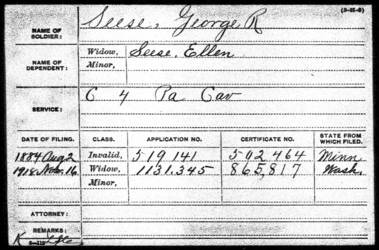 (3-35-6)
NAME OF SOLDIER: Seese, George R
NAME OF DEPENDENT: Widow, Seese, Ellen
Minor,
SERVICE: C 4 Pa Cav
DATE OF FILING. CLASS. APPLICATION NO. CERTIFICATE NO. STATE FROM WHICH FILED.
1884 Aug 2 Invalid, 519 141 502 464 Minn
1918 Nov. 16 Widow, 1131.345 865,817 Wash.
Minor,
ATTORNEY:
REMARKS:
K